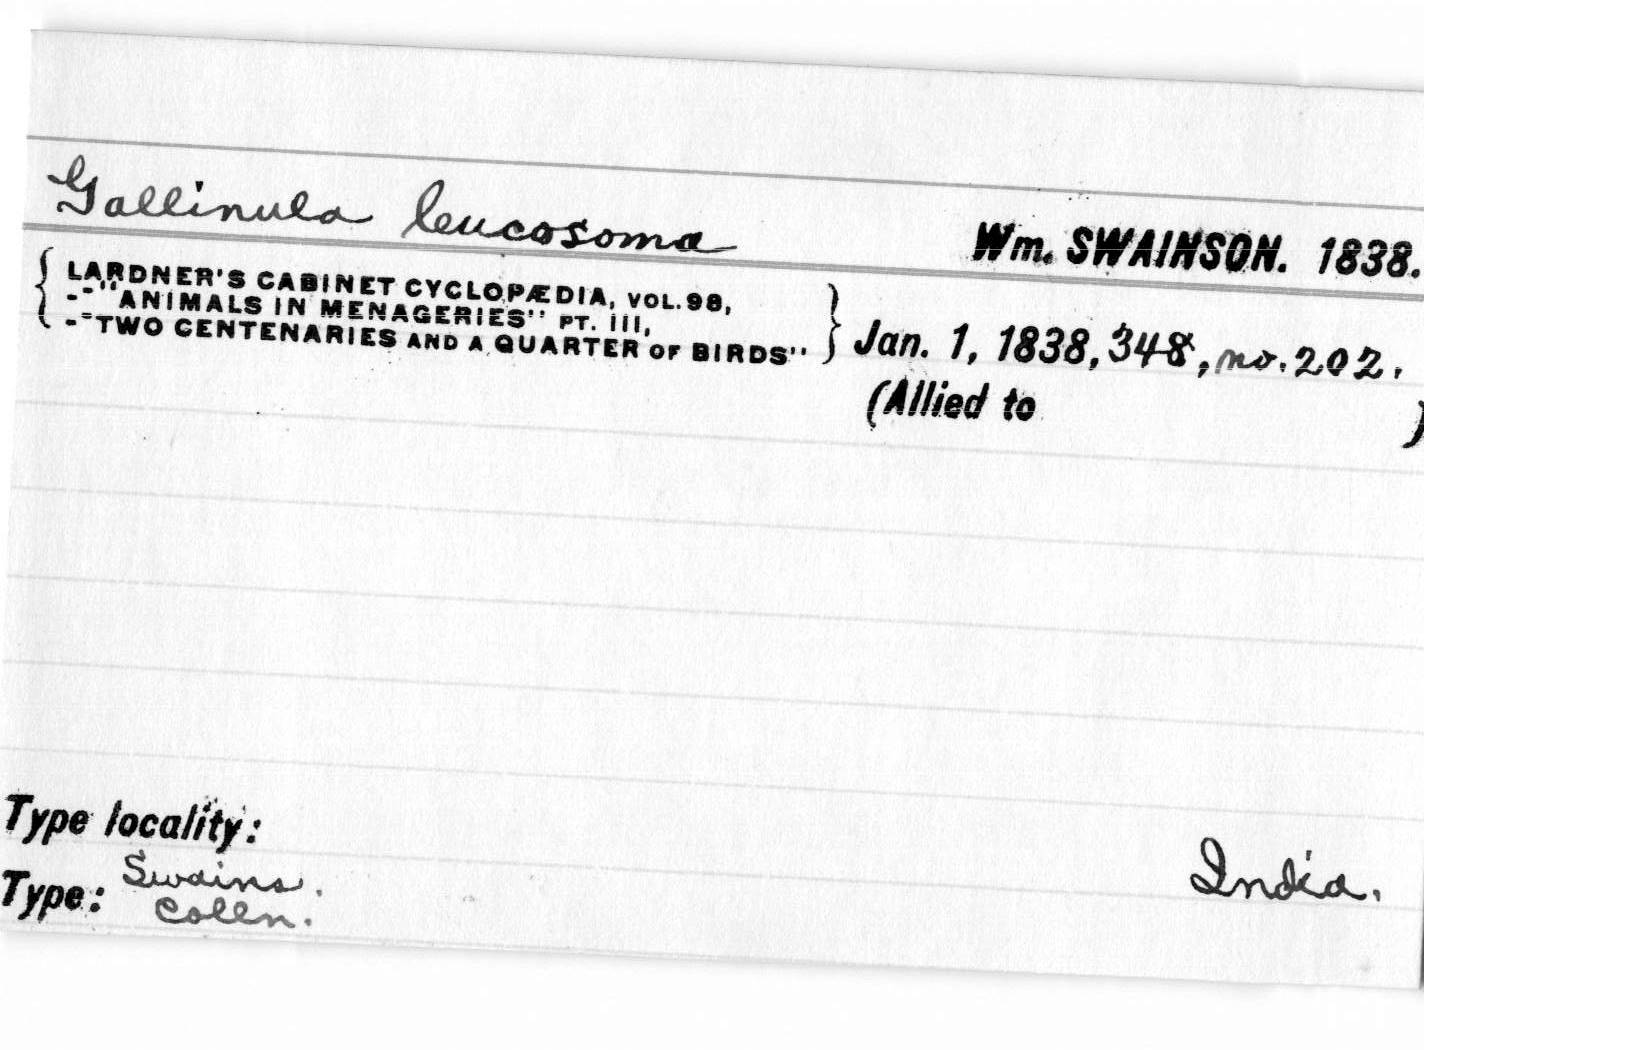 Gallinula leucosoma
Wm. SWAINSON. 1838.
{ LARDNER'S CABINET CYCLOPÆDIA, VOL. 98,
--"ANIMALS IN MENAGERIES" PT. III,
--"TWO CENTENARIES AND A QUARTER OF BIRDS" }
Jan. 1, 1838, 348, no. 202.
(Allied to )
Type locality:
India.
Type: Swains.
Colln.